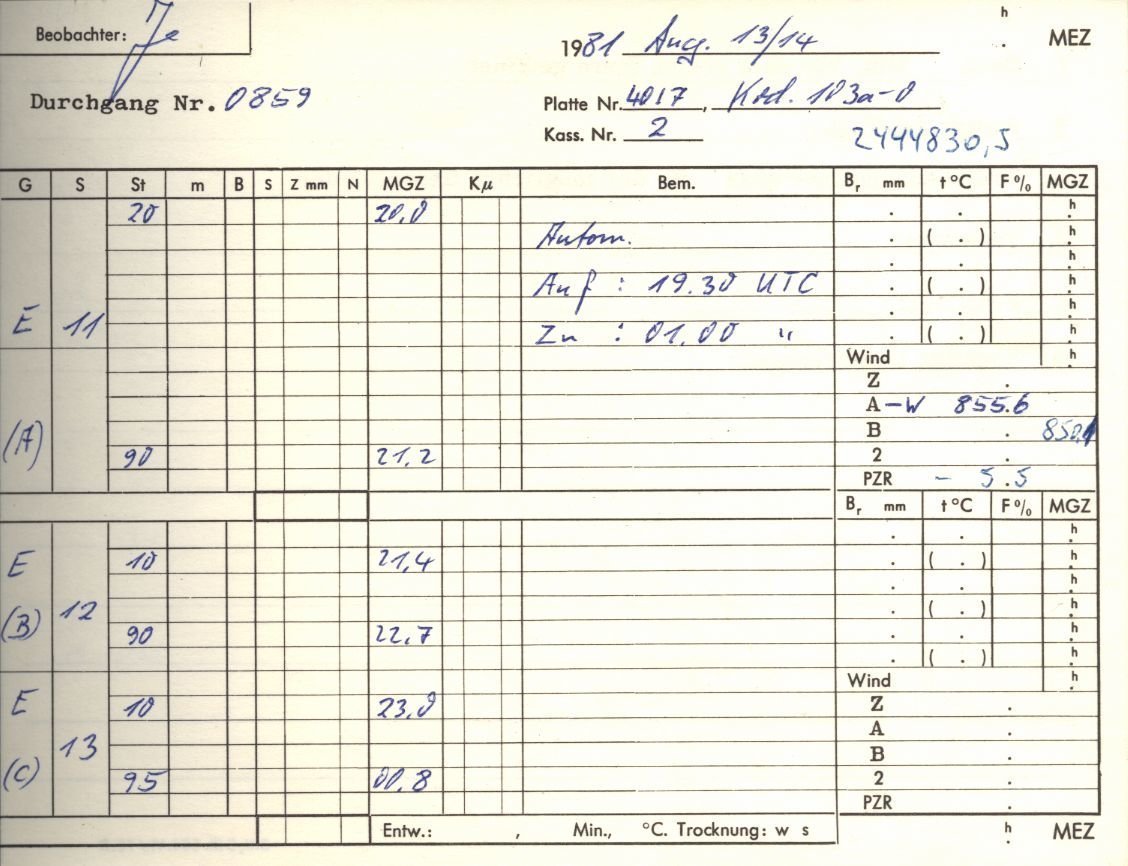 h
Beobachter: Je
1981 Aug. 13/14 . MEZ
Durchgang Nr. 0859
Platte Nr. 4017, Kod. 103a-0
Kass. Nr. 2
2444830,5
G S St m B S Z mm N MGZ Kμ Bem. Br mm t °C F% MGZ
20 20,0 . . h
Autom. . ( . ) h
. . h
Auf : 19.30 UTC . ( . ) h
. . h
E 11 Zu : 01.00 " . ( . ) h
Wind h
Z .
A -W 855.6
(A) B .
90 21,2 2 .
PZR - 5.5
Br mm t °C F% MGZ
. . h
E 10 21,4 . ( . ) h
. . h
(B) 12 . ( . ) h
90 22,7 . . h
. ( . ) h
Wind h
E 10 23,0 Z .
A .
13 B .
(C) 95 00,8 2 .
PZR .
Entw.: , Min., °C. Trocknung: w s h . MEZ